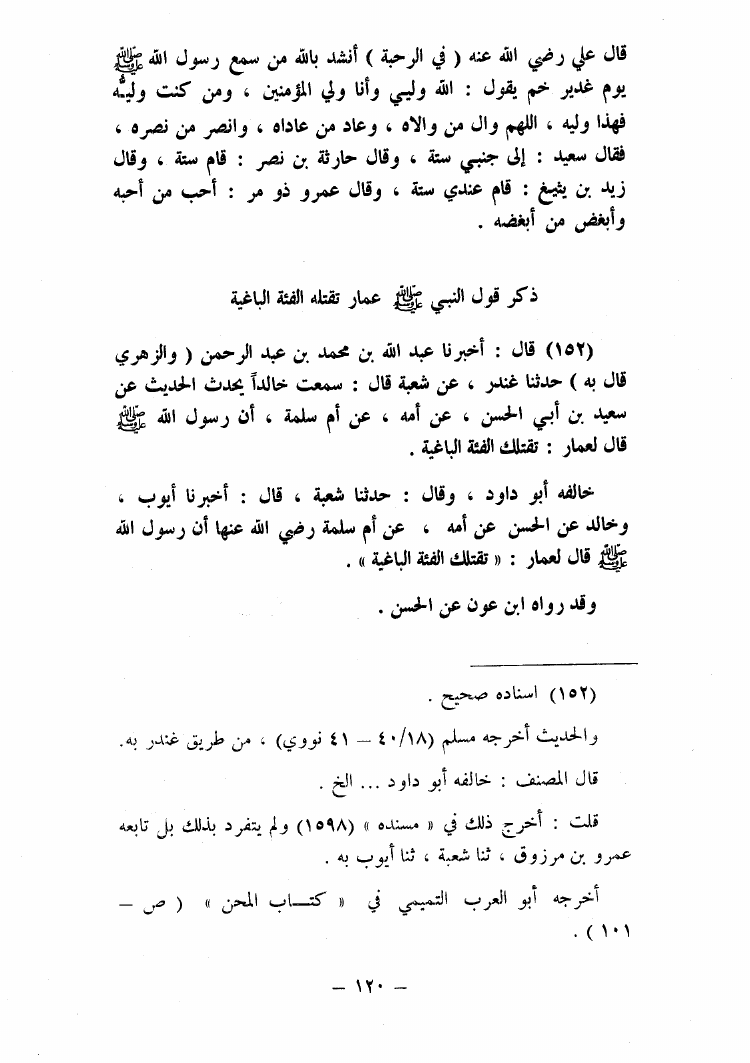 قال علي رضي الله عنه ( في الرحبة ) أنشد بالله من سمع رسول الله ﷺ
يوم غدير خم يقول : الله وليي وأنا ولي المؤمنين ، ومن كنت وليُّه
فهذا وليه ، اللهم وال من والاه ، وعاد من عاداه ، وانصر من نصره ،
فقال سعيد : إلى جنبي ستة ، وقال حارثة بن نصر : قام ستة ، وقال
زيد بن يثيغ : قام عندي ستة ، وقال عمرو ذو مر : أحب من أحبه
وأبغض من أبغضه .
ذكر قول النبي ﷺ عمار تقتله الفئة الباغية
(١٥٢) قال : أخبرنا عبد الله بن محمد بن عبد الرحمن ( والزهري
قال به ) حدثنا غندر ، عن شعبة قال : سمعت خالداً يحدث الحديث عن
سعيد بن أبي الحسن ، عن أمه ، عن أم سلمة ، أن رسول الله ﷺ
قال لعمار : تقتلك الفئة الباغية .
خالفه أبو داود ، وقال : حدثنا شعبة ، قال : أخبرنا أيوب ،
وخالد عن الحسن عن أمه ، عن أم سلمة رضي الله عنها أن رسول الله
ﷺ قال لعمار : « تقتلك الفئة الباغية » .
وقد رواه ابن عون عن الحسن .
(١٥٢) اسناده صحيح .
والحديث أخرجه مسلم (٤٠/١٨ – ٤١ نووي) ، من طريق غندر به.
قال المصنف : خالفه أبو داود ... الخ .
قلت : أخرج ذلك في « مسنده » (١٥٩٨) ولم يتفرد بذلك بل تابعه
عمرو بن مرزوق ، ثنا شعبة ، ثنا أيوب به .
أخرجه أبو العرب التميمي في « كتـاب المحن » ( ص –
١٠١ ) .
– ١٢٠ –